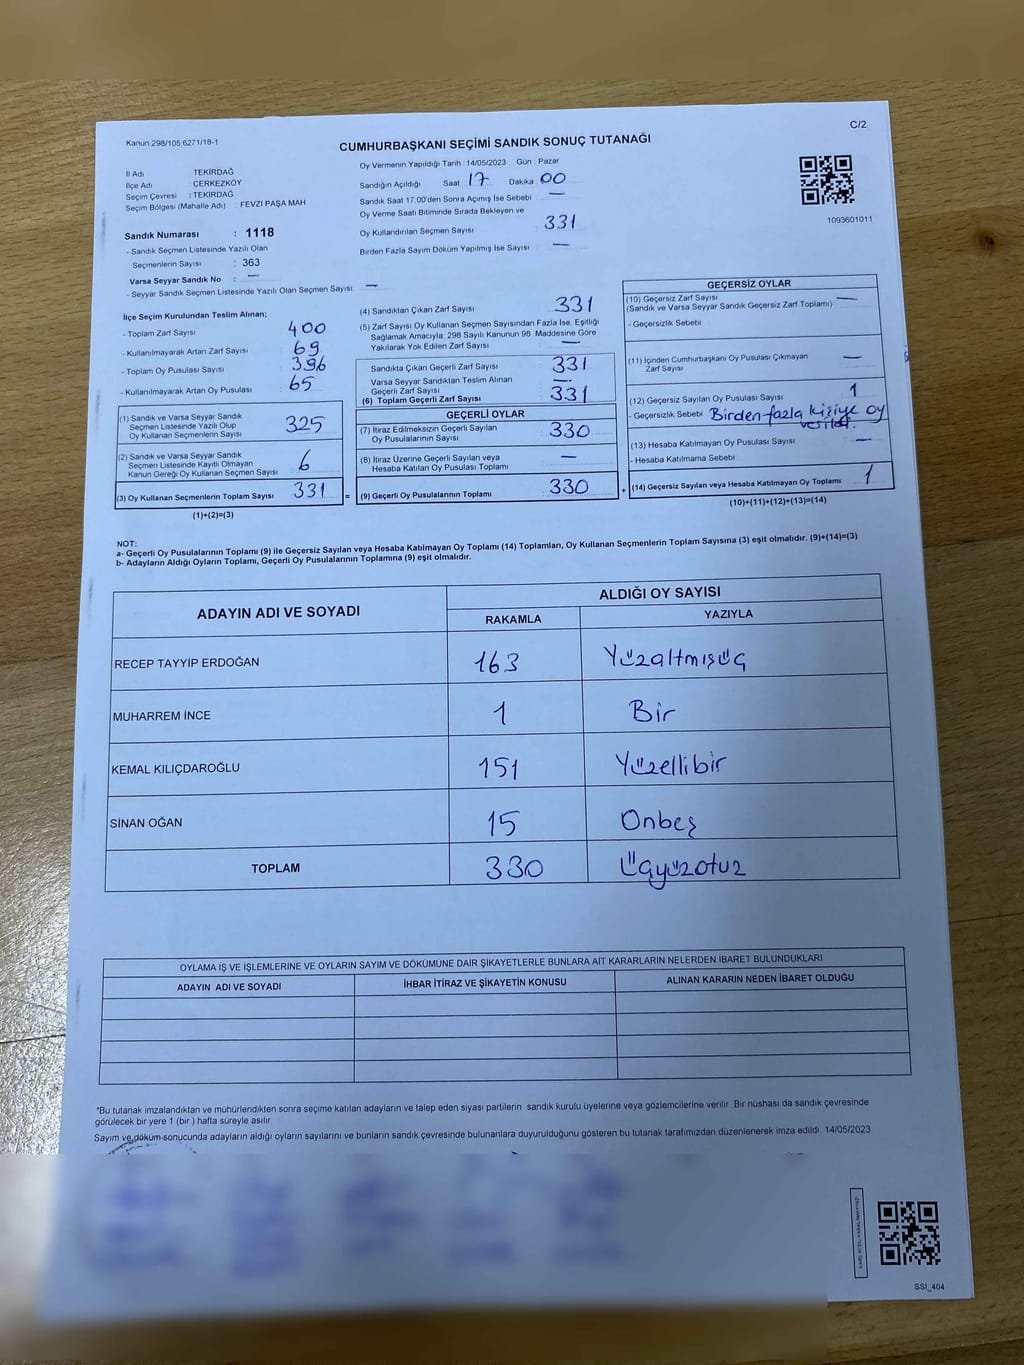 C/2
Kanun:298/105;6271/18-1
CUMHURBAŞKANI SEÇİMİ SANDIK SONUÇ TUTANAĞI
İl Adı : TEKİRDAĞ
İlçe Adı : ÇERKEZKÖY
Seçim Çevresi : TEKİRDAĞ
Seçim Bölgesi (Mahalle Adı) : FEVZİ PAŞA MAH
Sandık Numarası : 1118
- Sandık Seçmen Listesinde Yazılı Olan
Seçmenlerin Sayısı : 363
Varsa Seyyar Sandık No : —
- Seyyar Sandık Seçmen Listesinde Yazılı Olan Seçmen Sayısı —
Oy Vermenin Yapıldığı Tarih : 14/05/2023 Gün : Pazar
Sandığın Açıldığı Saat 17 Dakika 00
Sandık Saat 17:00'den Sonra Açımış İse Sebebi —
Oy Verme Saati Bitiminde Sırada Bekleyen ve
Oy Kullandırılan Seçmen Sayısı 331
Birden Fazla Sayım Döküm Yapılmış İse Sayısı —
1093601011
İlçe Seçim Kurulundan Teslim Alınan;
- Toplam Zarf Sayısı 400
- Kullanılmayarak Artan Zarf Sayısı 69
- Toplam Oy Pusulası Sayısı 396
- Kullanılmayarak Artan Oy Pusulası 65
(1) Sandık ve Varsa Seyyar Sandık
Seçmen Listesinde Yazılı Olup
Oy Kullanan Seçmenlerin Sayısı 325
(2) Sandık ve Varsa Seyyar Sandık
Seçmen Listesinde Kayıtlı Olmayan
Kanun Gereği Oy Kullanan Seçmen Sayısı 6
(3) Oy Kullanan Seçmenlerin Toplam Sayısı 331 =
(1)+(2)=(3)
(4) Sandıktan Çıkan Zarf Sayısı 331
(5) Zarf Sayısı Oy Kullanan Seçmen Sayısından Fazla İse, Eşitliği
Sağlamak Amacıyla, 298 Sayılı Kanunun 98. Maddesine Göre
Yakılarak Yok Edilen Zarf Sayısı —
Sandıkta Çıkan Geçerli Zarf Sayısı 331
Varsa Seyyar Sandıktan Teslim Alınan
Geçerli Zarf Sayısı —
(6) Toplam Geçerli Zarf Sayısı 331
GEÇERLİ OYLAR
(7) İtiraz Edilmeksizin Geçerli Sayılan
Oy Pusulalarının Sayısı 330
(8) İtiraz Üzerine Geçerli Sayılan veya
Hesaba Katılan Oy Pusulası Toplamı —
(9) Geçerli Oy Pusulalarının Toplamı 330 +
GEÇERSİZ OYLAR
(10) Geçersiz Zarf Sayısı —
(Sandık ve Varsa Seyyar Sandık Geçersiz Zarf Toplamı)
- Geçersizlik Sebebi :
(11) İçinden Cumhurbaşkanı Oy Pusulası Çıkmayan
Zarf Sayısı —
(12) Geçersiz Sayılan Oy Pusulası Sayısı 1
- Geçersizlik Sebebi Birden fazla kişiye oy
verildi.
(13) Hesaba Katılmayan Oy Pusulası Sayısı —
- Hesaba Katılmama Sebebi :
(14) Geçersiz Sayılan veya Hesaba Katılmayan Oy Toplamı 1
(10)+(11)+(12)+(13)=(14)
NOT:
a- Geçerli Oy Pusulalarının Toplamı (9) ile Geçersiz Sayılan veya Hesaba Katılmayan Oy Toplamı (14) Toplamları, Oy Kullanan Seçmenlerin Toplam Sayısına (3) eşit olmalıdır. (9)+(14)=(3)
b- Adayların Aldığı Oyların Toplamı, Geçerli Oy Pusulalarının Toplamına (9) eşit olmalıdır.
ADAYIN ADI VE SOYADI
ALDIĞI OY SAYISI
RAKAMLA YAZIYLA
RECEP TAYYİP ERDOĞAN 163 Yüzaltmışüç
MUHARREM İNCE 1 Bir
KEMAL KILIÇDAROĞLU 151 Yüzellibir
SİNAN OĞAN 15 Onbeş
TOPLAM 330 Üçyüzotuz
OYLAMA İŞ VE İŞLEMLERİNE VE OYLARIN SAYIM VE DÖKÜMÜNE DAİR ŞİKAYETLERLE BUNLARA AİT KARARLARIN NELERDEN İBARET BULUNDUKLARI
ADAYIN ADI VE SOYADI İHBAR İTİRAZ VE ŞİKAYETİN KONUSU ALINAN KARARIN NEDEN İBARET OLDUĞU
*Bu tutanak imzalandıktan ve mühürlendikten sonra seçime katılan adayların ve talep eden siyasi partilerin sandık kurulu üyelerine veya gözlemcilerine verilir. Bir nüshası da sandık çevresinde
görülecek bir yere 1 (bir ) hafta süreyle asılır.
Sayım ve döküm sonucunda adayların aldığı oyların sayılarını ve bunların sandık çevresinde bulunanlara duyurulduğunu gösteren bu tutanak tarafımızdan düzenlenerek imza edildi. 14/05/2023
SSI_404